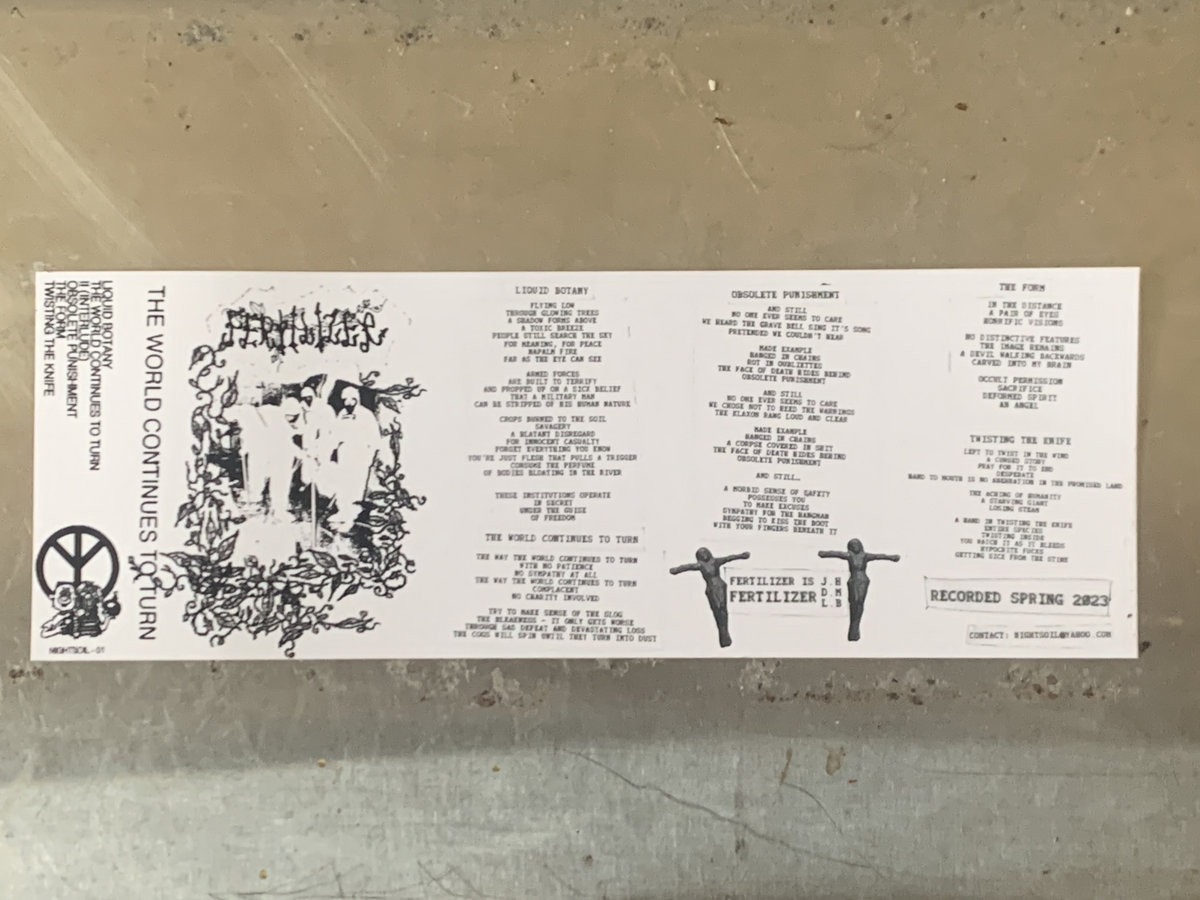 LIQUID BOTANY
THE WORLD CONTINUES TO TURN
II (INTERLUDE)
OBSOLETE PUNISHMENT
THE FORM
TWISTING THE KNIFE
NIGHTSOIL - 01
THE WORLD CONTINUES TO TURN
FERTILIZER
LIQUID BOTANY
FLYING LOW
THROUGH GLOWING TREES
A SHADOW FORMS ABOVE
A TOXIC BREEZE
PEOPLE STILL SEARCH THE SKY
FOR MEANING, FOR PEACE
NAPALM FIRE
FAR AS THE EYE CAN SEE
ARMED FORCES
ARE BUILT TO TERRIFY
AND PROPPED UP ON A SICK BELIEF
THAT A MILITARY MAN
CAN BE STRIPPED OF HIS HUMAN NATURE
CROPS BURNED TO THE SOIL
SAVAGERY
A BLATANT DISREGARD
FOR INNOCENT CASUALTY
FORGET EVERYTHING YOU KNOW
YOU'RE JUST FLESH THAT PULLS A TRIGGER
CONSUME THE PERFUME
OF BODIES BLOATING IN THE RIVER
THESE INSTITUTIONS OPERATE
IN SECRET
UNDER THE GUISE
OF FREEDOM
THE WORLD CONTINUES TO TURN
THE WAY THE WORLD CONTINUES TO TURN
WITH NO PATIENCE
NO SYMPATHY AT ALL
THE WAY THE WORLD CONTINUES TO TURN
COMPLACENT
NO CHARITY INVOLVED
TRY TO MAKE SENSE OF THE SLOG
THE BLEAKNESS - IT ONLY GETS WORSE
THROUGH SAD DEFEAT AND DEVASTATING LOSS
THE COGS WILL SPIN UNTIL THEY TURN INTO DUST
OBSOLETE PUNISHMENT
AND STILL
NO ONE EVER SEEMS TO CARE
WE HEARD THE GRAVE BELL SING IT'S SONG
PRETENDED WE COULDN'T HEAR
MADE EXAMPLE
HANGED IN CHAINS
ROT IN OUBLIETTES
THE FACE OF DEATH HIDES BEHIND
OBSOLETE PUNISHMENT
AND STILL
NO ONE EVER SEEMS TO CARE
WE CHOSE NOT TO HEED THE WARNINGS
THE KLAXON RANG LOUD AND CLEAR
MADE EXAMPLE
HANGED IN CHAINS
A CORPSE COVERED IN SHIT
THE FACE OF DEATH HIDES BEHIND
OBSOLETE PUNISHMENT
AND STILL…
A MORBID SENSE OF SAFETY
POSSESSES YOU
TO MAKE EXCUSES
SYMPATHY FOR THE HANGMAN
BEGGING TO KISS THE BOOT
WITH YOUR FINGERS BENEATH IT
FERTILIZER IS J.H
FERTILIZER D.M
L.B
THE FORM
IN THE DISTANCE
A PAIR OF EYES
HORRIFIC VISIONS
NO DISTINCTIVE FEATURES
THE IMAGE REMAINS
A DEVIL WALKING BACKWARDS
CARVED INTO MY BRAIN
OCCULT PERMISSION
SACRIFICE
DEFORMED SPIRIT
AN ANGEL
TWISTING THE KNIFE
LEFT TO TWIST IN THE WIND
A CURSED STORY
PRAY FOR IT TO END
DESPERATE
HAND TO MOUTH IS NO ABERRATION IN THE PROMISED LAND
THE ACHING OF HUMANITY
A STARVING GIANT
LOSING STEAM
A HAND IN TWISTING THE KNIFE
ENTIRE SPECIES
TWISTING INSIDE
YOU WATCH IT AS IT BLEEDS
HYPOCRITE FUCKS
GETTING SICK FROM THE STINK
RECORDED SPRING 2023
CONTACT: NIGHTSOIL@YAHOO.COM